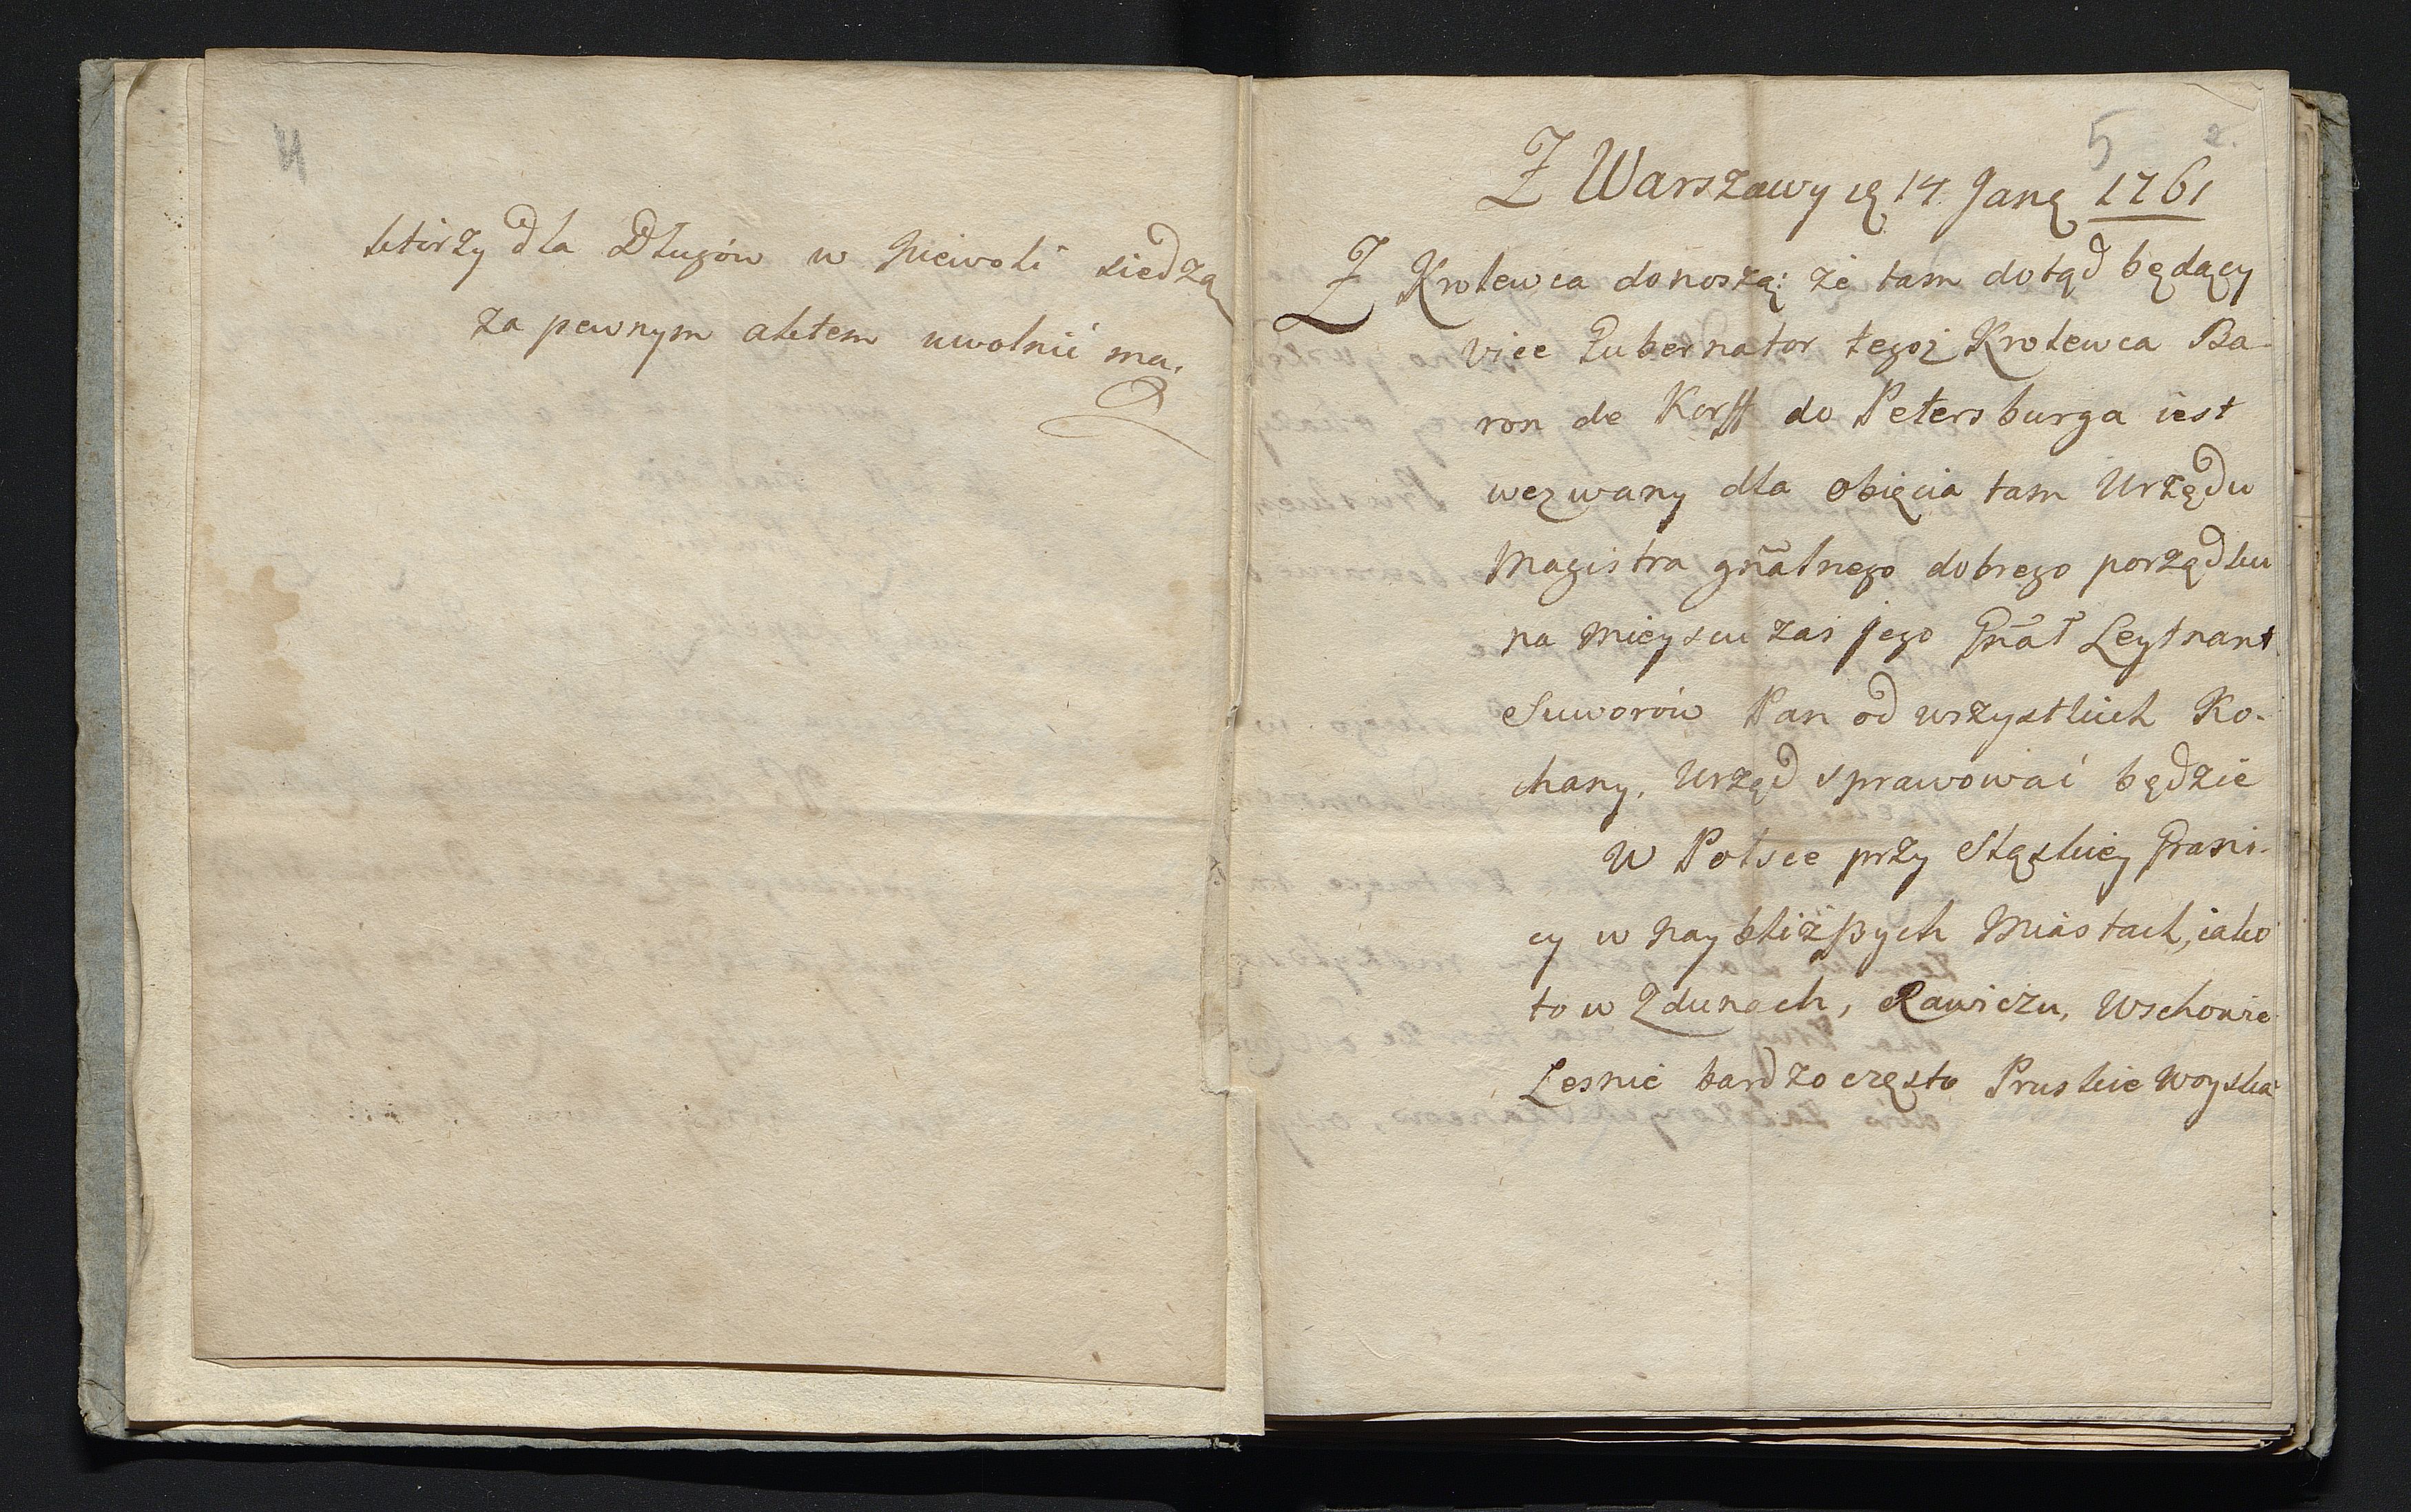 4
ktirzy dla Długów w Niewoli siedzą
za pewnym aktem uwolnić ma.
5 2.
Z Warszawy ię 14 Janę 1761
Z Krolewca donoszą: że tam dotąd będący
vice Gubernator tegoż Krolewca Ba-
ron de Korff do Petersburga iest
wezwany dla obięcia tam Urzędu
Magistra gñalnego dobrego porządku
na mieyscu zaś jego Gñał Leytnant
Suworów Pan od wszystkich Ko-
chany, Urząd sprawować będzie
W Polsce przy Sląskiey Grani-
cy w naybliżßych Miastach, iako
to w Zdunach, Rawiczu, Wschowie
Lesnie bardzo często Pruskie Woyska